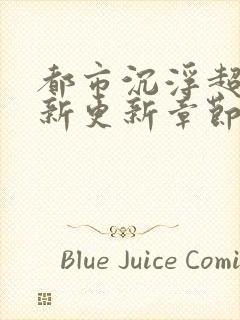 都市沉浮超
新更新章節
Blue Juice Comi